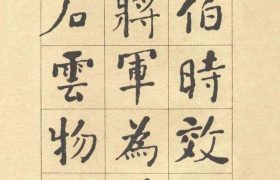 伯時效
將軍為
石雲物